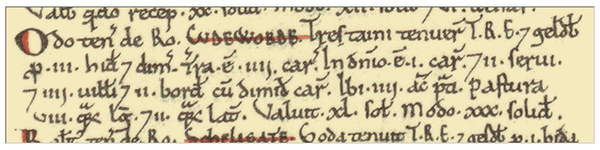 Valt q̃do recep. xx. solid. Modo. solid.
Odo teñ de Ro. WDEWORDE. Tres taini tenuer̃ T.R.E. 7 geldƀ
ꝑ .III. hid̃ 7 dim̃. Tr̃a .ē. IIII. car̃. In dñio .ē. I. car̃. 7 II. serui.
7 IIII. uilƚi 7 II. bord̃ cū dimid̃ car̃. Ibi .IIII. ac̃ p̃ti. Pastura
VIII. q̃ꝝ lg̃. 7 II. q̃ꝝ lat̃. Valuit .XL. sol. Modo .XXX. solid̃.
teñ de Ro. Goda tenuit T.R.E. 7 geldƀ ꝑ .I. hida